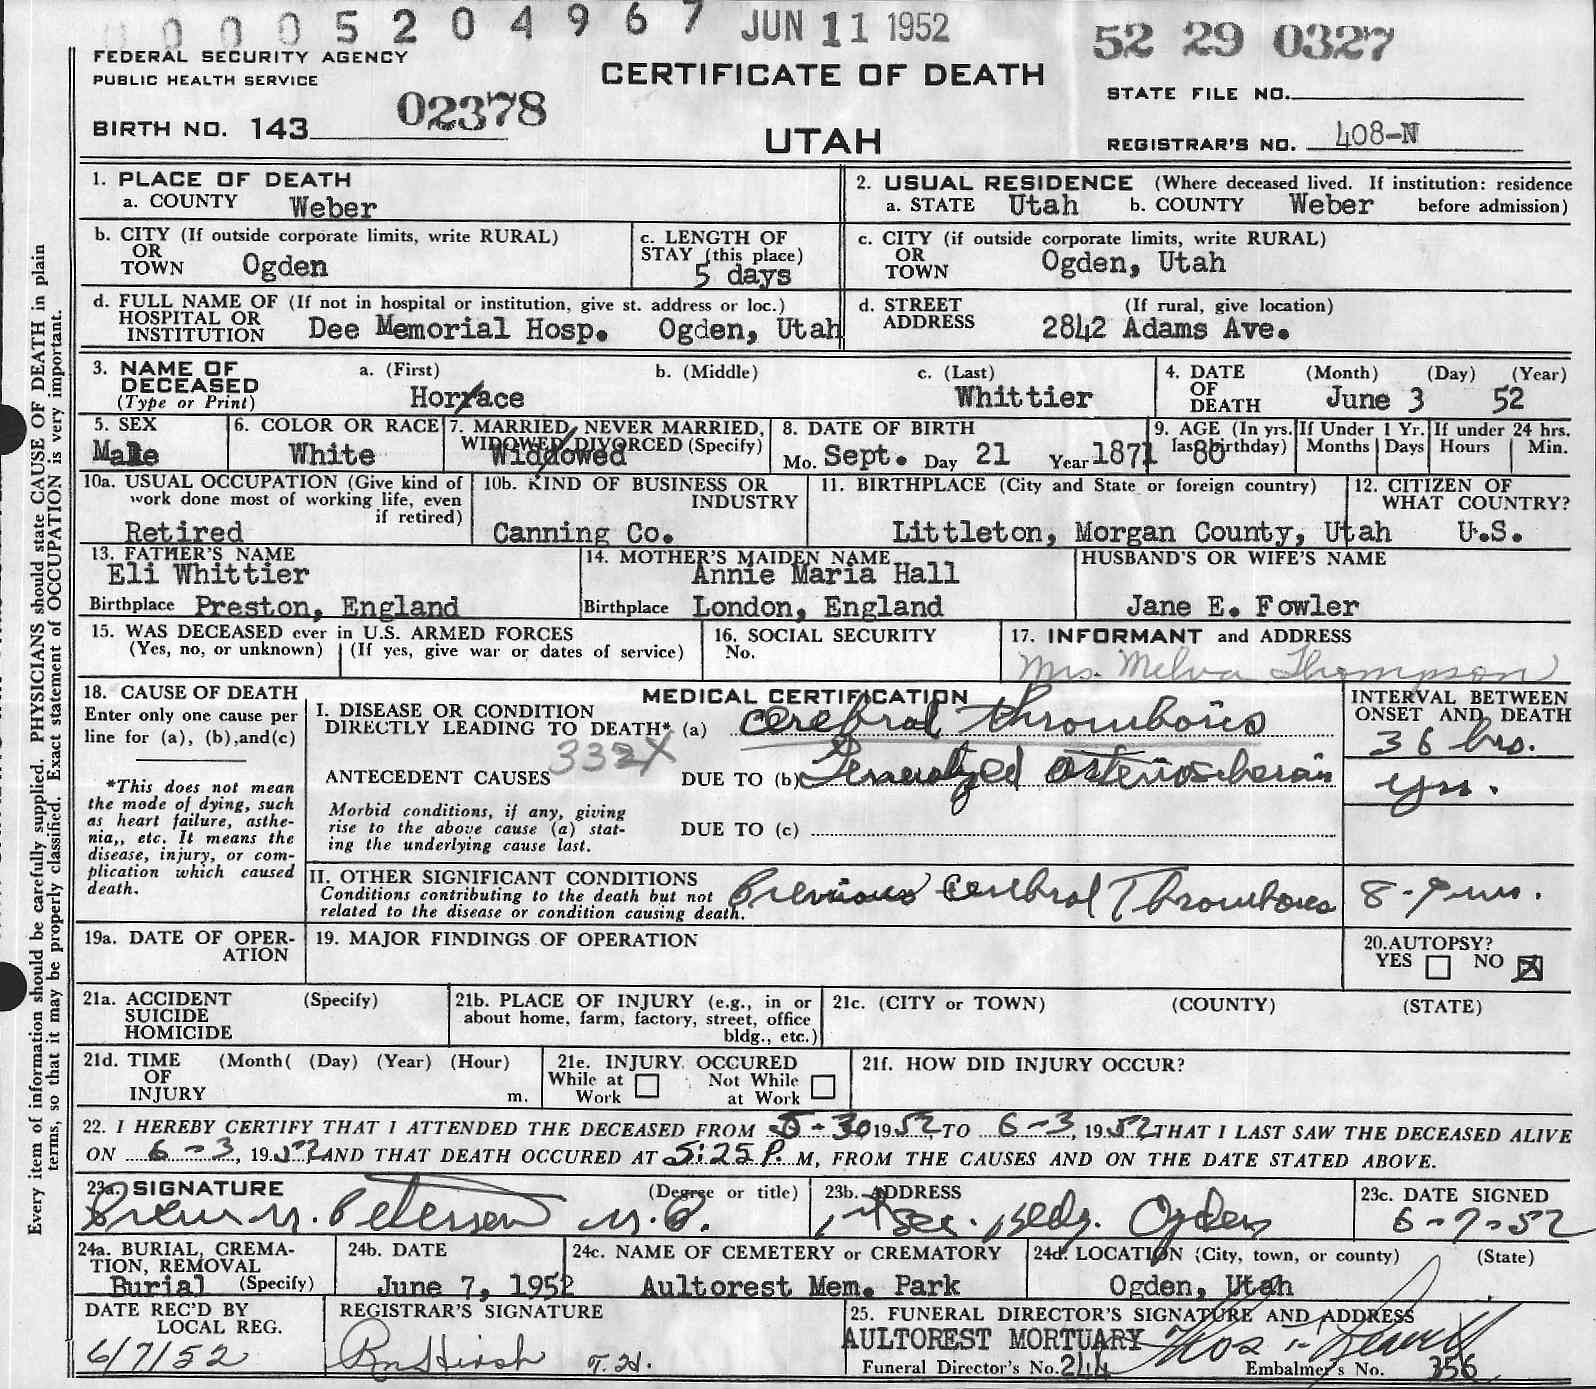 0005204967 JUN 11 1952 52 29 0327
FEDERAL SECURITY AGENCY
PUBLIC HEALTH SERVICE
CERTIFICATE OF DEATH
STATE FILE NO.
BIRTH NO. 143 02378
UTAH
REGISTRAR'S NO. 408-N
1. PLACE OF DEATH
a. COUNTY Weber
2. USUAL RESIDENCE (Where deceased lived. If institution: residence
a. STATE Utah b. COUNTY Weber before admission)
b. CITY (If outside corporate limits, write RURAL)
OR
TOWN Ogden
c. LENGTH OF
STAY (this place)
5 days
c. CITY (if outside corporate limits, write RURAL)
OR
TOWN Ogden, Utah
d. FULL NAME OF (If not in hospital or institution, give st. address or loc.)
HOSPITAL OR
INSTITUTION Dee Memorial Hosp. Ogden, Utah
d. STREET (If rural, give location)
ADDRESS 2842 Adams Ave.
3. NAME OF
DECEASED
(Type or Print)
a. (First) b. (Middle) c. (Last)
Horrace Whittier
4. DATE (Month) (Day) (Year)
OF
DEATH June 3 52
5. SEX
Male
6. COLOR OR RACE
White
7. MARRIED, NEVER MARRIED,
WIDOWED, DIVORCED (Specify)
Widdowed
8. DATE OF BIRTH
Mo. Sept. Day 21 Year 1871
9. AGE (In yrs.
last birthday) 80
If Under 1 Yr.
Months Days
If under 24 hrs.
Hours Min.
10a. USUAL OCCUPATION (Give kind of
work done most of working life, even
if retired)
Retired
10b. KIND OF BUSINESS OR
INDUSTRY
Canning Co.
11. BIRTHPLACE (City and State or foreign country)
Littleton, Morgan County, Utah
12. CITIZEN OF
WHAT COUNTRY?
U.S.
13. FATHER'S NAME
Eli Whittier
Birthplace Preston, England
14. MOTHER'S MAIDEN NAME
Annie Maria Hall
Birthplace London, England
HUSBAND'S OR WIFE'S NAME
Jane E. Fowler
15. WAS DECEASED ever in U.S. ARMED FORCES
(Yes, no, or unknown) (If yes, give war or dates of service)
16. SOCIAL SECURITY
No.
17. INFORMANT and ADDRESS
Mrs. Melva Thompson
18. CAUSE OF DEATH
Enter only one cause per
line for (a), (b),and(c)
*This does not mean
the mode of dying, such
as heart failure, asthe-
nia,, etc. It means the
disease, injury, or com-
plication which caused
death.
MEDICAL CERTIFICATION
I. DISEASE OR CONDITION
DIRECTLY LEADING TO DEATH* (a) Cerebral thrombosis
332X
ANTECEDENT CAUSES DUE TO (b) Generalized arteriosclerosis
Morbid conditions, if any, giving
rise to the above cause (a) stat-
ing the underlying cause last.
DUE TO (c)
II. OTHER SIGNIFICANT CONDITIONS
Conditions contributing to the death but not
related to the disease or condition causing death.
Previous Cerebral Thrombosis
INTERVAL BETWEEN
ONSET AND DEATH
36 hrs.
yrs.
19a. DATE OF OPER-
ATION
19. MAJOR FINDINGS OF OPERATION
20.AUTOPSY?
YES NO X
21a. ACCIDENT (Specify)
SUICIDE
HOMICIDE
21b. PLACE OF INJURY (e.g., in or
about home, farm, factory, street, office
bldg., etc.)
21c. (CITY or TOWN) (COUNTY) (STATE)
21d. TIME (Month( (Day) (Year) (Hour)
OF
INJURY m.
21e. INJURY OCCURED
While at Not While
Work at Work
21f. HOW DID INJURY OCCUR?
22. I HEREBY CERTIFY THAT I ATTENDED THE DECEASED FROM 5-30 1952, TO 6-3, 1952 THAT I LAST SAW THE DECEASED ALIVE
ON 6-3, 1952 AND THAT DEATH OCCURED AT 5:25 P. M, FROM THE CAUSES AND ON THE DATE STATED ABOVE.
23a. SIGNATURE (Degree or title)
Peterson M.D.
23b. ADDRESS
1st Sec. Bldg. Ogden
23c. DATE SIGNED
6-7-52
24a. BURIAL, CREMA-
TION, REMOVAL
Burial (Specify)
24b. DATE
June 7, 1952
24c. NAME OF CEMETERY or CREMATORY
Aultorest Mem. Park
24d. LOCATION (City, town, or county) (State)
Ogden, Utah
DATE REC'D BY
LOCAL REG.
6/7/52
REGISTRAR'S SIGNATURE
25. FUNERAL DIRECTOR'S SIGNATURE AND ADDRESS
AULTOREST MORTUARY
Funeral Director's No. 244 Embalmer's No. 356
Every item of information should be carefully supplied. PHYSICIANS should state CAUSE OF DEATH in plain
terms, so that it may be properly classified. Exact statement of OCCUPATION is very important.